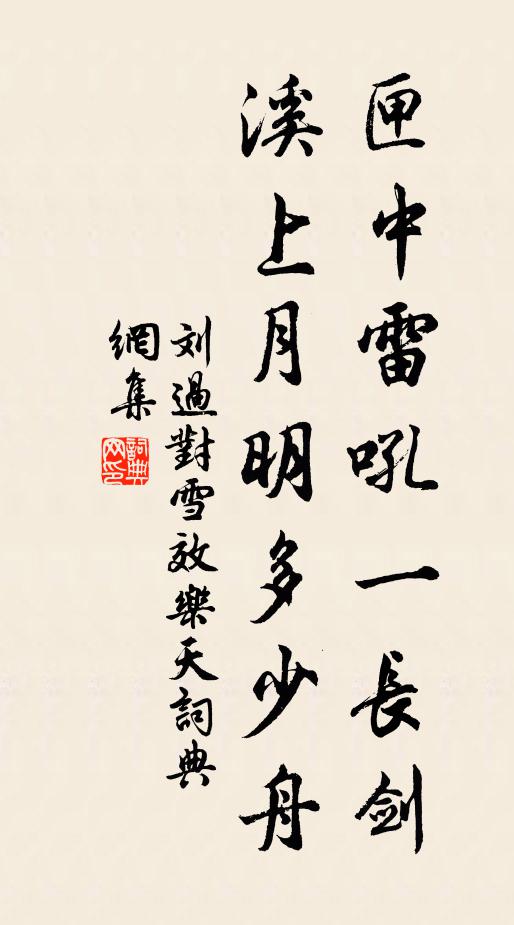 匣中雷吼一長劍
溪上月明多少舟
刘過對雪效樂天詞典
網集
詞典網印